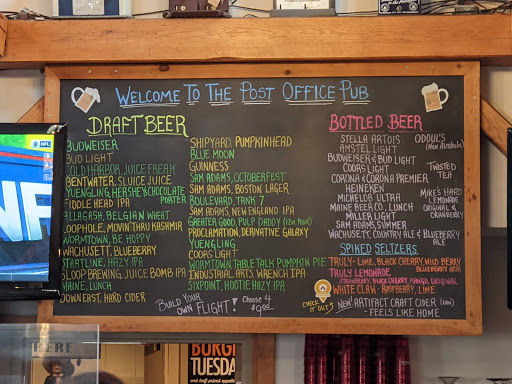 WELCOME TO THE POST OFFICE PUB
DRAFT BEER
BUDWEISER
BUD LIGHT
COLD HARBOR, JUICE FREAK
BENTWATER, SLUICE JUICE
YUENGLING, HERSHEY'S CHOCOLATE
PORTER
FIDDLE HEAD IPA
ALLAGASH, BELGIAN WHEAT
LOOPHOLE, MOVIN THRU KASHMIR
WORMTOWN, BE HOPPY
WACHUSETT, BLUEBERRY
STARTLINE, HAZY IPA
SLOOP BREWING, JUICE BOMB IPA
MAINE, LUNCH
DOWNEAST, HARD CIDER
SHIPYARD, PUMPKINHEAD
BLUE MOON
GUINNESS
SAM ADAMS, OCTOBERFEST
SAM ADAMS, BOSTON LAGER
BOULEVARD, TANK 7
SAM ADAMS, NEW ENGLAND IPA
GREATER GOOD, PULP DADDY
PROCLAMATION, DERIVATIVE GALAXY
YUENGLING
COORS LIGHT
WORMTOWN, TABLE TALK PUMPKIN PIE
INDUSTRIAL ARTS, WRENCH IPA
SIXPOINT, HOOTIE HAZY IPA
BUILD YOUR
OWN FLIGHT!
CHOOSE 4
BOTTLED BEER
STELLA ARTOIS
AMSTEL LIGHT
BUDWEISER & BUD LIGHT
COORS LIGHT
CORONA & CORONA PREMIER
HEINEKEN
MICHELOB ULTRA
MAINE BEER CO. LUNCH
MILLER LIGHT
SAM ADAMS, SUMMER
WACHUSETT, COUNTRY ALE & BLUEBERRY
ALE
ODOUL'S
(Non Alcoholic)
TWISTED
TEA
MIKE'S HARD
LEMONADE
ORIGINAL &
CRANBERRY
SPIKED SELTZERS
TRULY- LIME, BLACK CHERRY, WILD BERRY
BLUEBERRY ACAI
TRULY LEMONADE
STRAWBERRY, BLACK CHERRY, MANGO, ORIGINAL
WHITE CLAW - RASPBERRY, LIME
CHECK
IT OUT
NEW! ARTIFACT CRAFT CIDER (can)
- FEELS LIKE HOME
NFL
BURGR
TUESDA